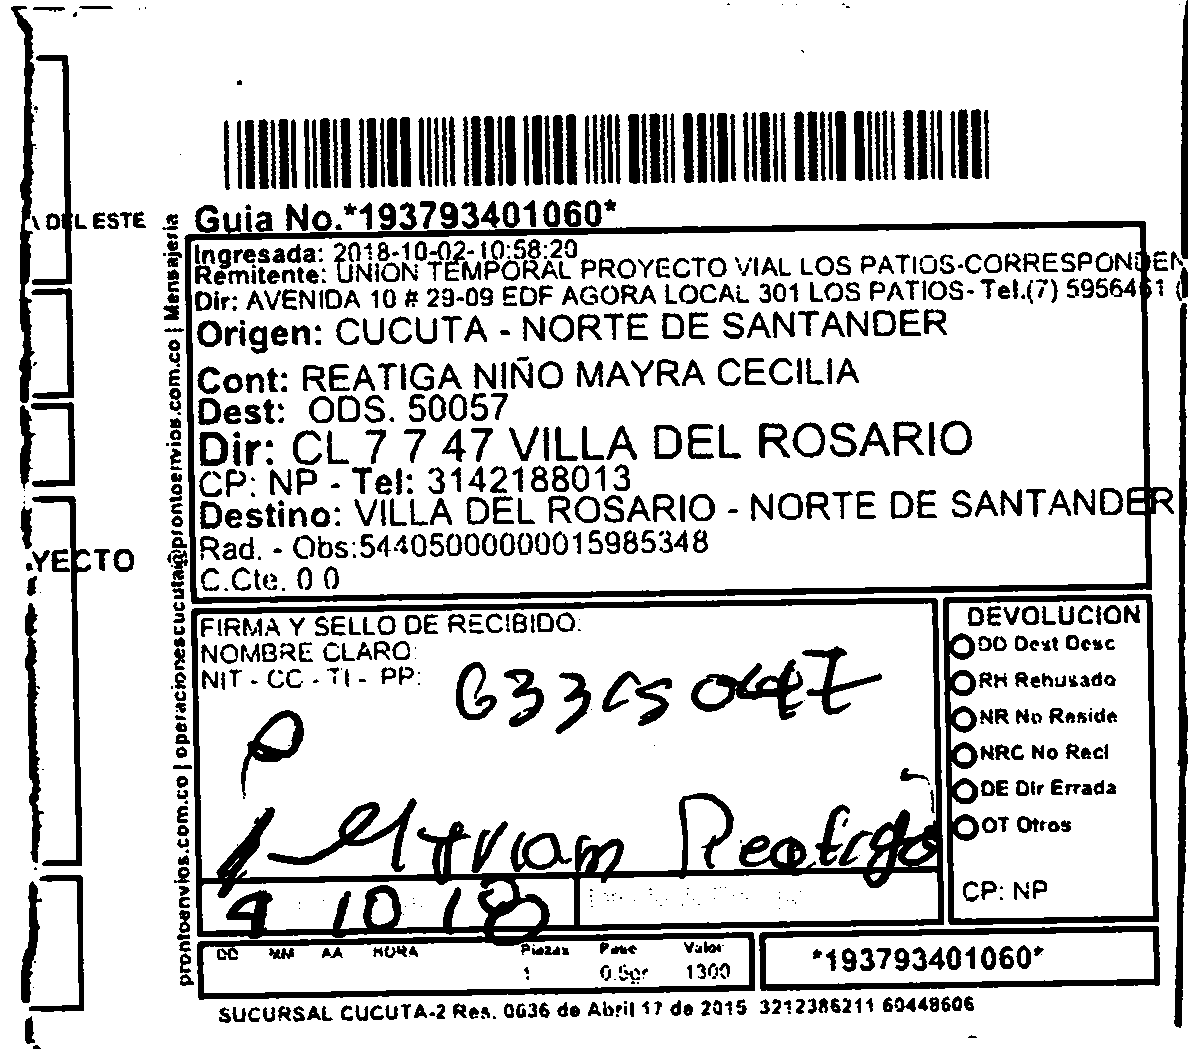 Guia No.*193793401060*
Ingresada: 2018-10-02-10:58:20
Remitente: UNION TEMPORAL PROYECTO VIAL LOS PATIOS-CORRESPONDEN
Dir: AVENIDA 10 # 29-09 EDF AGORA LOCAL 301 LOS PATIOS- Tel.(7) 5956461 (
Origen: CUCUTA - NORTE DE SANTANDER
Cont: REATIGA NIÑO MAYRA CECILIA
Dest: ODS. 50057
Dir: CL 7 7 47 VILLA DEL ROSARIO
CP: NP - Tel: 3142188013
Destino: VILLA DEL ROSARIO - NORTE DE SANTANDER
Rad. - Obs:544050000000015985348
C.Cte. 0 0
DEL ESTE
YECTO
prontoenvios.com.co | operacionescucuta@prontoenvios.com.co | Mensajeria
FIRMA Y SELLO DE RECIBIDO:
NOMBRE CLARO:
NIT - CC - TI - PP:
Myriam Reatiga
10 18
DD MM AA HORA
Piezas Pese Valor
1 0.5gr 1300
DEVOLUCION
DD Dest Desc
RH Rehusado
NR No Reside
NRC No Recl
DE Dir Errada
OT Otros
CP: NP
*193793401060*
SUCURSAL CUCUTA-2 Res. 0636 de Abril 17 de 2015 3212386211 60448606